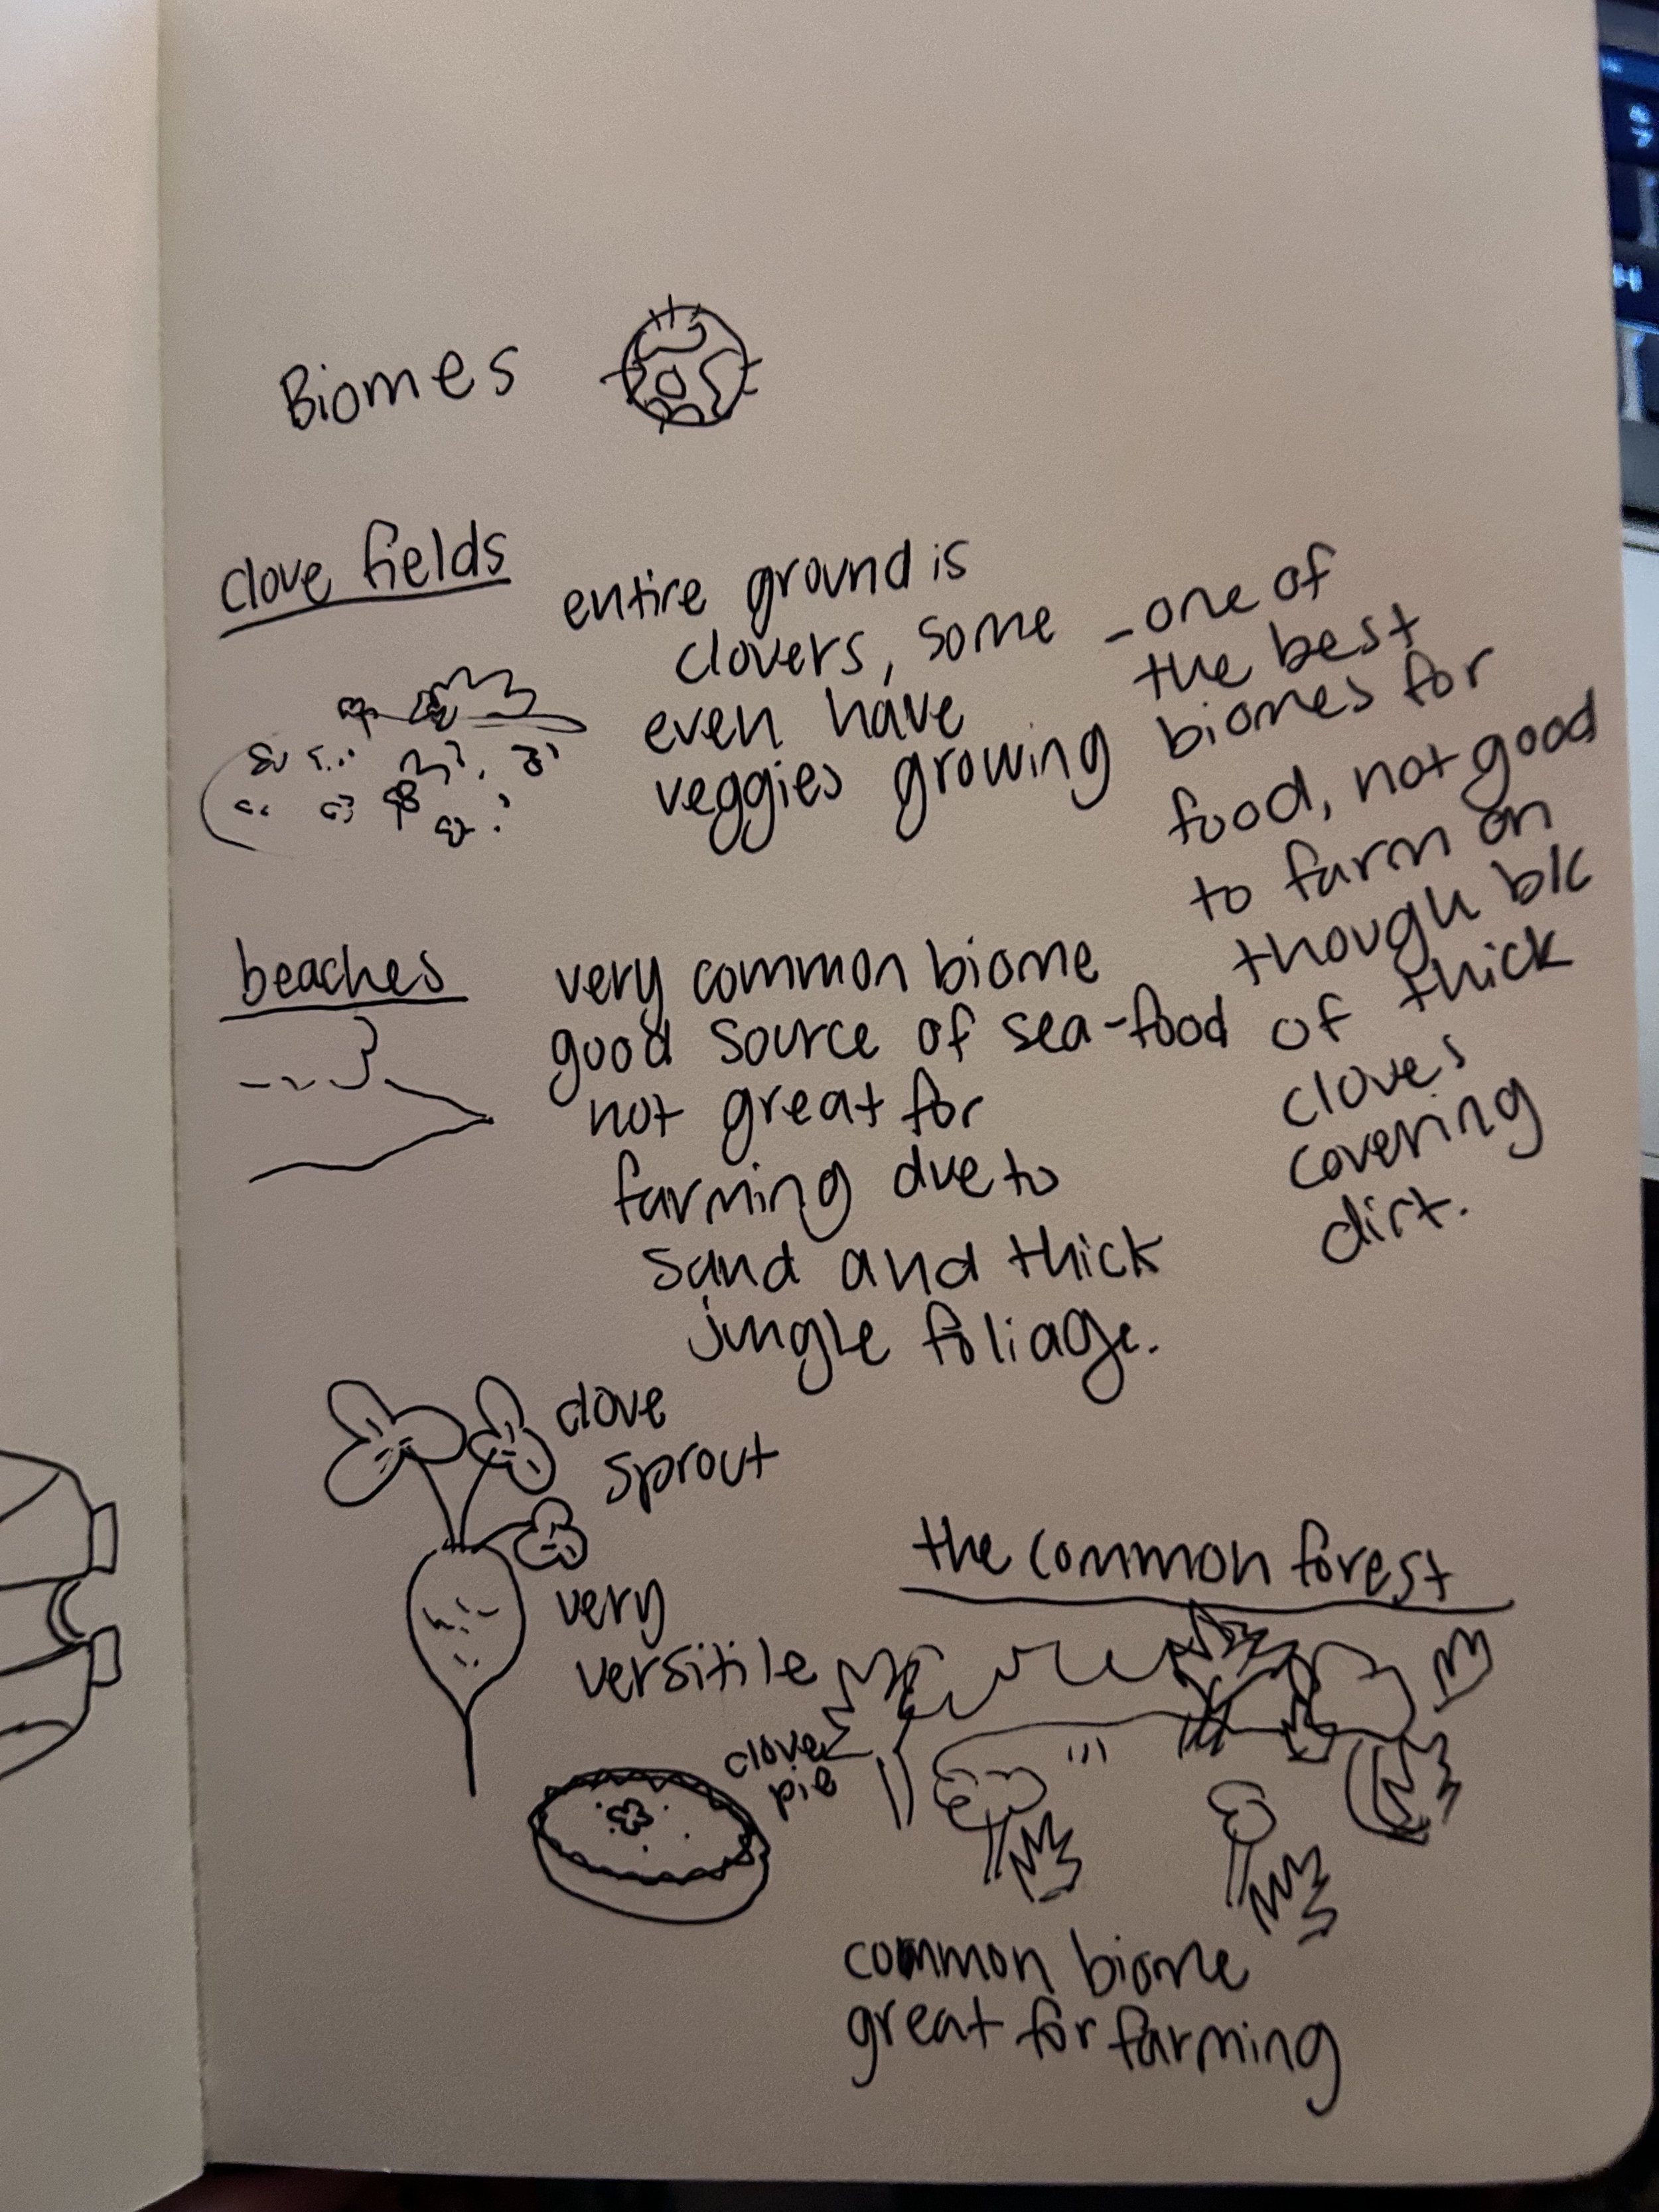 Biomes
clove fields
entire ground is
clovers, some
even have
veggies growing
- one of
the best
biomes for
food, not good
to farm on
though b/c
of thick
cloves
covering
dirt.
beaches
very common biome
good source of sea-food
not great for
farming due to
sand and thick
jungle foliage.
clove
sprout
very
versitile
clove
pie
the common forest
common biome
great for farming